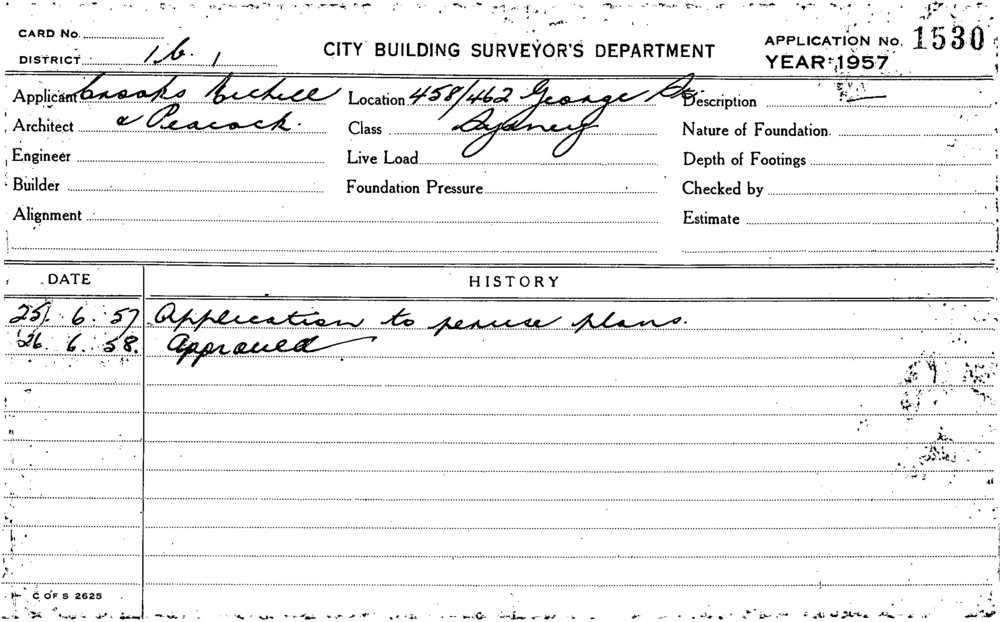 CARD No.
DISTRICT 1 6. 1
CITY BUILDING SURVEYOR'S DEPARTMENT
APPLICATION No. 1530
YEAR 1957
Applicant Crooks Michell
Architect & Peacock.
Engineer
Builder
Alignment
Location 458/462 George St.
Class Sydney
Live Load
Foundation Pressure
Description
Nature of Foundation
Depth of Footings
Checked by
Estimate
DATE HISTORY
25. 6. 57 Application to peruse plans.
26. 6. 58. Approved
C OF S 2625